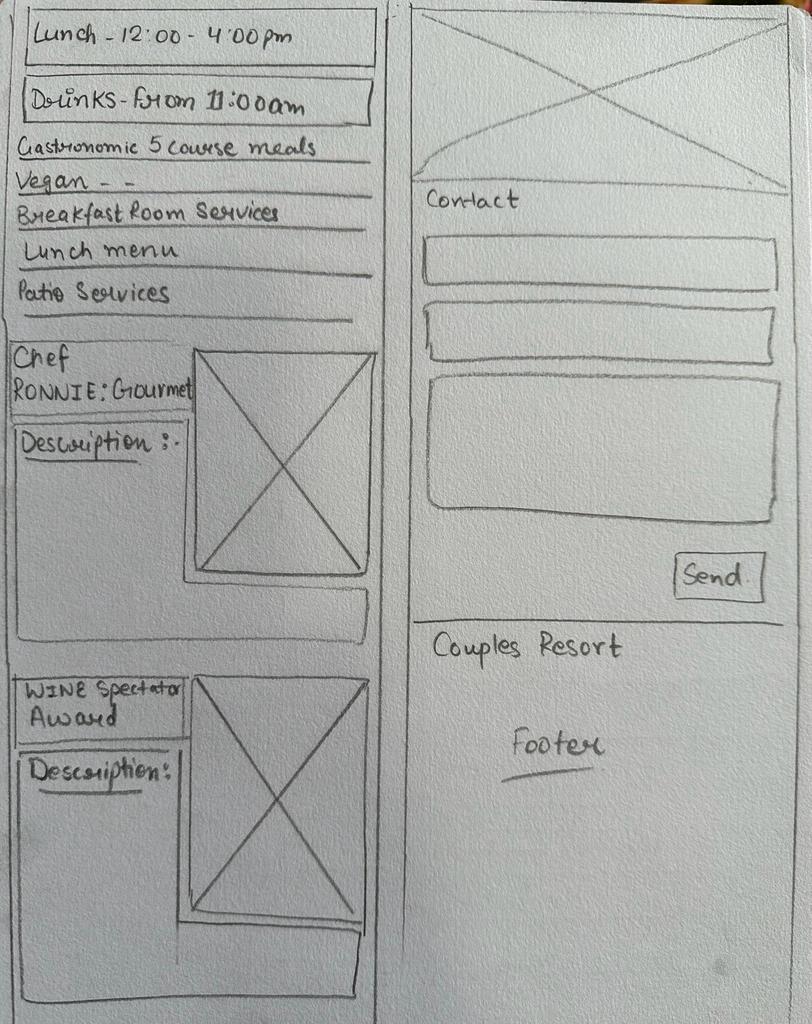 Lunch - 12:00 - 4:00pm
Drinks - from 11:00am
Gastronomic 5 course meals
Vegan - -
Breakfast Room Services
Lunch menu
Patio Services
Chef
RONNIE: Gourmet
Description :-
WINE Spectator
Award
Description:
Contact
Send
Couples Resort
Footer